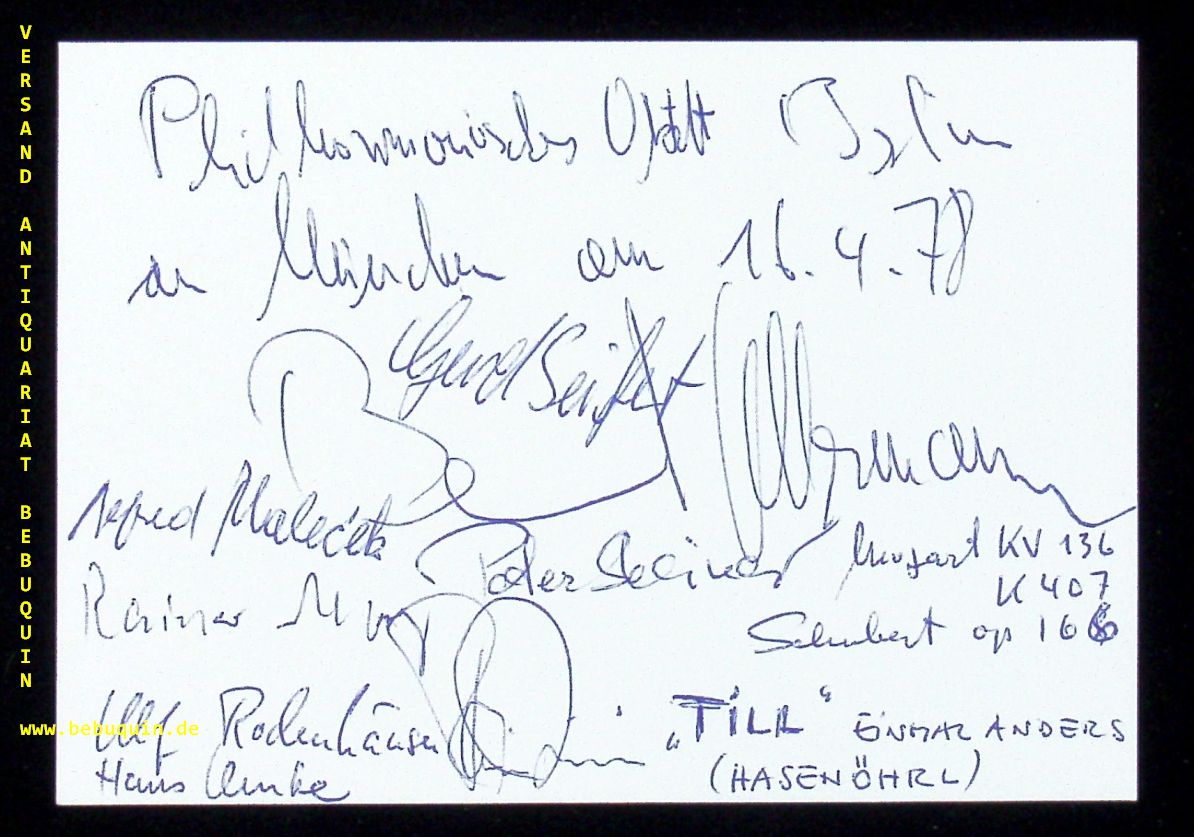 VERSAND ANTIQUARIAT BEBUQUIN
www.bebuquin.de
Philharmonisches Oktett Berlin
in München am 16.4.78
Gerd Seifert
Alfred Malecek
Peter Steiner
Mozart KV 136
K 407
Rainer
Schubert op 166
Ulf Rodenhäuser
„TILL“ EINMAL ANDERS
Hans
(HASENÖHRL)